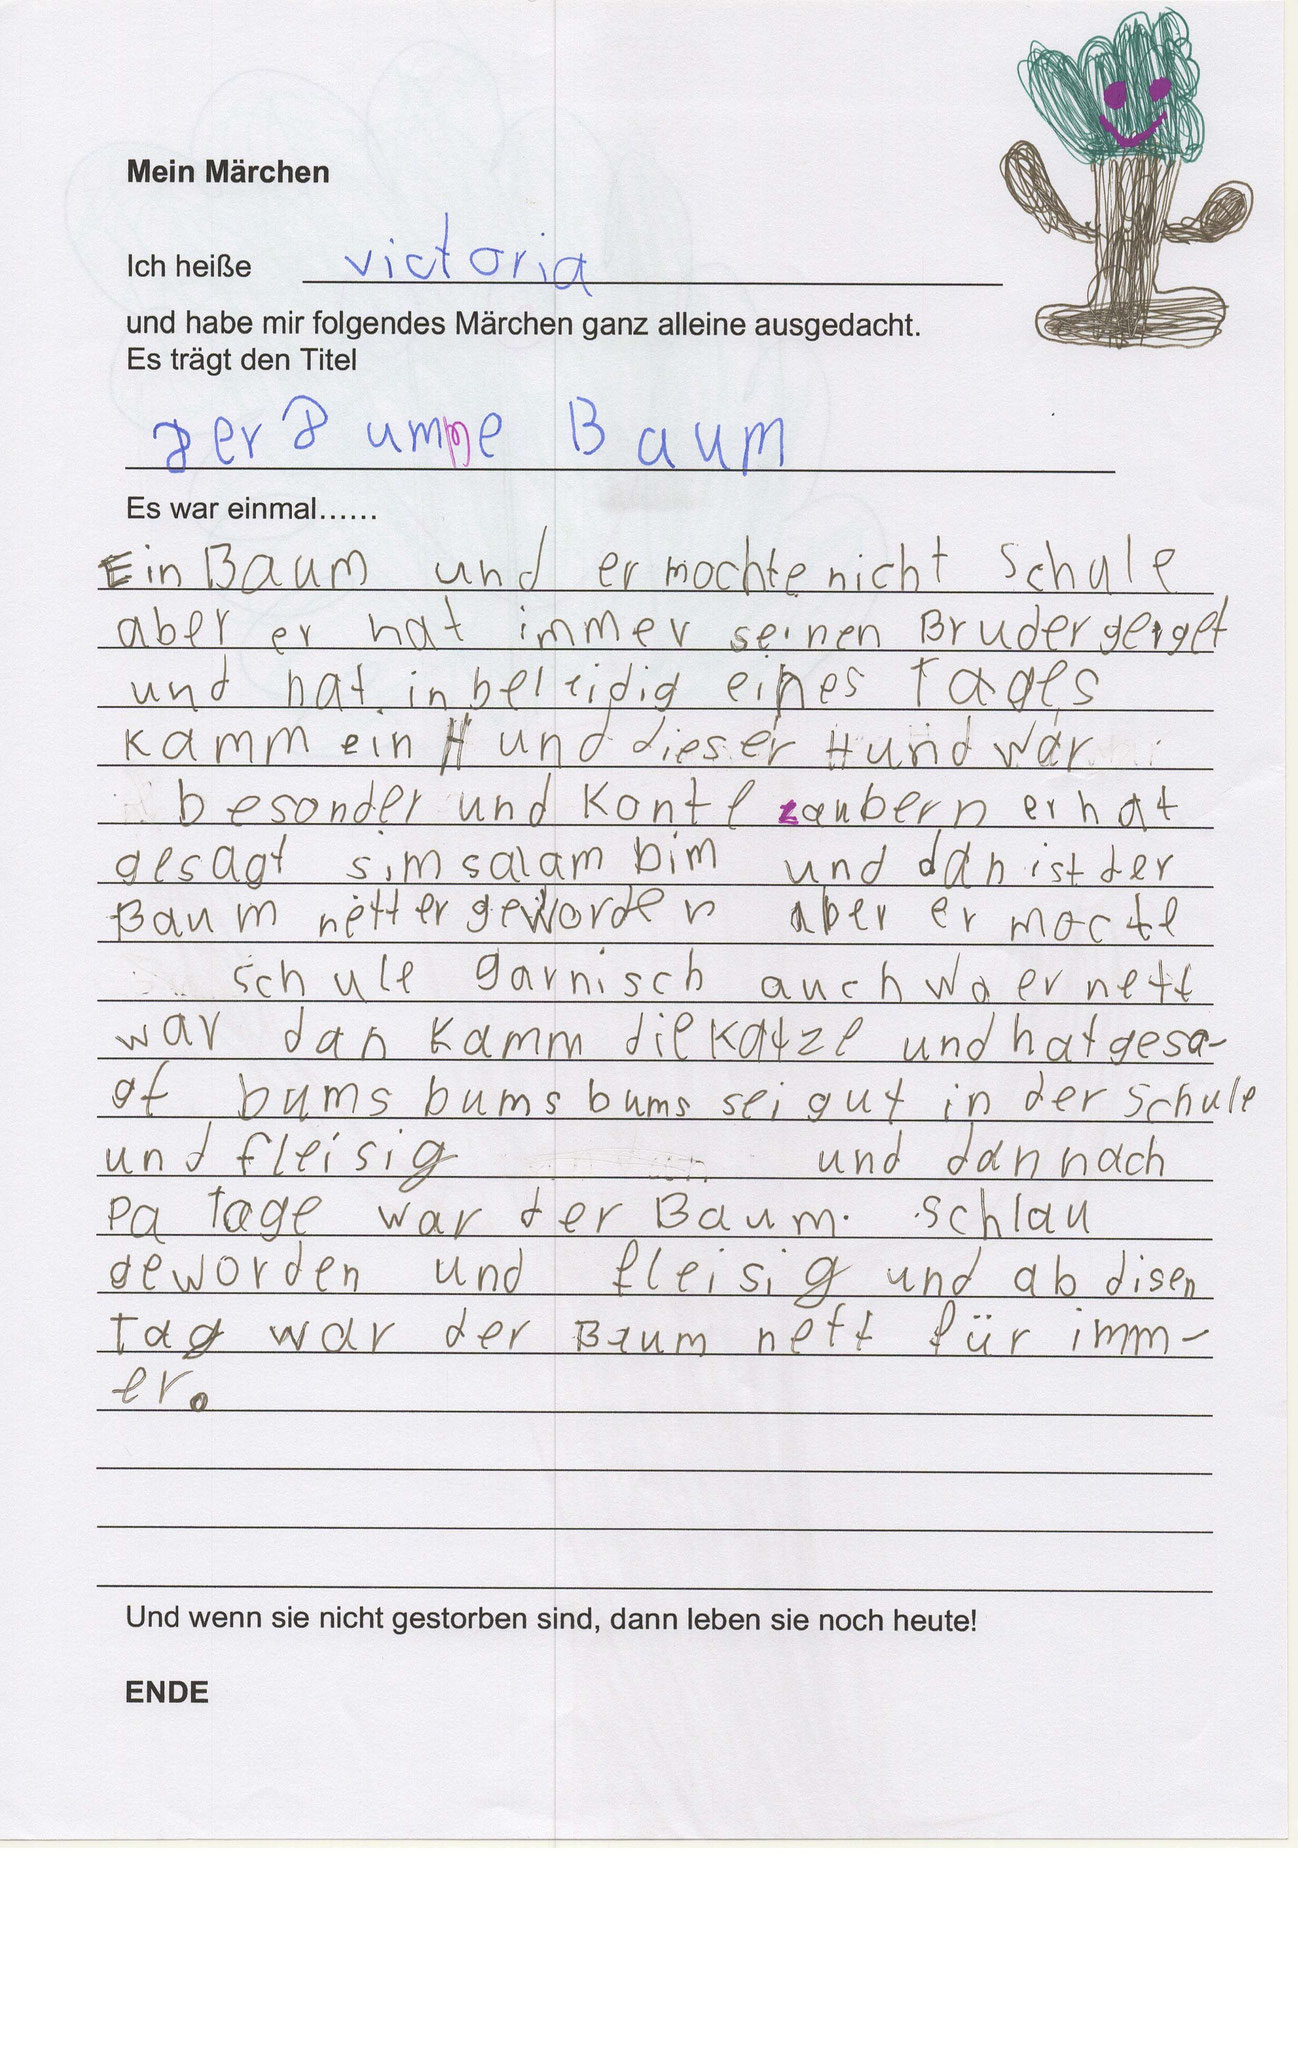 Mein Märchen
Ich heiße victoria
und habe mir folgendes Märchen ganz alleine ausgedacht.
Es trägt den Titel
Der Dumme Baum
Es war einmal......
Ein Baum und er mochte nicht Schule
aber er hat immer seinen Bruder gerget
und hat in beleidig eines Tages
kamm ein Hund dieser Hund war
besonder und konte zaubern er hat
gesagt simsalam bim und dan ist der
Baum netter geworden aber er mocte
schule garnisch auch wo er nett
war dan kamm die katze und hat gesa-
gt bums bums bums sei gut in der Schule
und fleisig und dan nach
pa tage war der Baum schlau
geworden und fleisig und ab disen
Tag war der Baum nett für imm-
er.
Und wenn sie nicht gestorben sind, dann leben sie noch heute!
ENDE